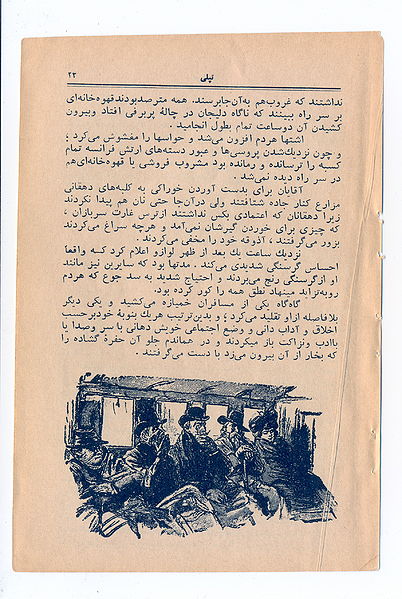 تپلی
۲۳
نداشتند که غروب هم به آن جا برسند. همه مترصد بودند قهوه خانه‌ای
بر سر راه ببینند که ناگاه دلیجان در چالهٔ پربرفی افتاد و بیرون
کشیدن آن دوساعت تمام بطول انجامید.
اشتها هردم افزون می‌شد و حواسها را مغشوش می‌کرد؛
و چون نزدیك‌شدن پروسی‌ها و عبور دسته‌های ارتش فرانسه تمام
کسبه را ترسانده و رمانده بود مشروب فروشی یا قهوه خانه‌ای هم
در سر راه دیده نمی‌شد.
آقایان برای بدست آوردن خوراکی به کلبه‌های دهقانی
مزارع کنار جاده شتافتند ولی درآن‌جا حتی نان هم پیدا نکردند
زیرا دهقانان که اعتمادی بکس نداشتند از ترس غارت سربازان،
که چیزی برای خوردن گیرشان نمی‌آمد و هرچه سراغ می‌کردند
بزور می‌گرفتند، آذوقه خود را مخفی می‌کردند.
نزدیك ساعت یك بعد از ظهر لوازو اعلام کرد کـه واقعا
احساس گرسنگی شدیدی می‌کند. مدتها بود که سایرین نیز مانند
او از گرسنگی رنج می‌بردند و احتیاج شدید به سد جوع که هردم
روبه‌تزاید مینهاد نطق همه را کور کرده بود.
گاه‌گاه یکی از مسافران خمیازه می‌کشید و یکی دیگر
بلافاصله ازاو تقلید می‌کرد؛ و بدین‌ترتیب هریك بنوبهٔ خود برحسب
اخلاق و آداب دانی و وضع اجتماعی خویش دهانی با سر وصدا یا
باادب ونزاکت باز میکردند و در همان‌دم جلو آن حفرهٔ گشاده را
که بخار از آن بیرون می‌زد با دست می‌گرفتند.